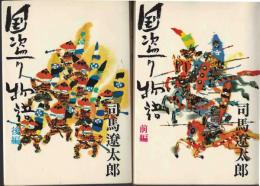 国盗り物語
後編
司馬遼太郎
国盗り物語
前編
司馬遼太郎